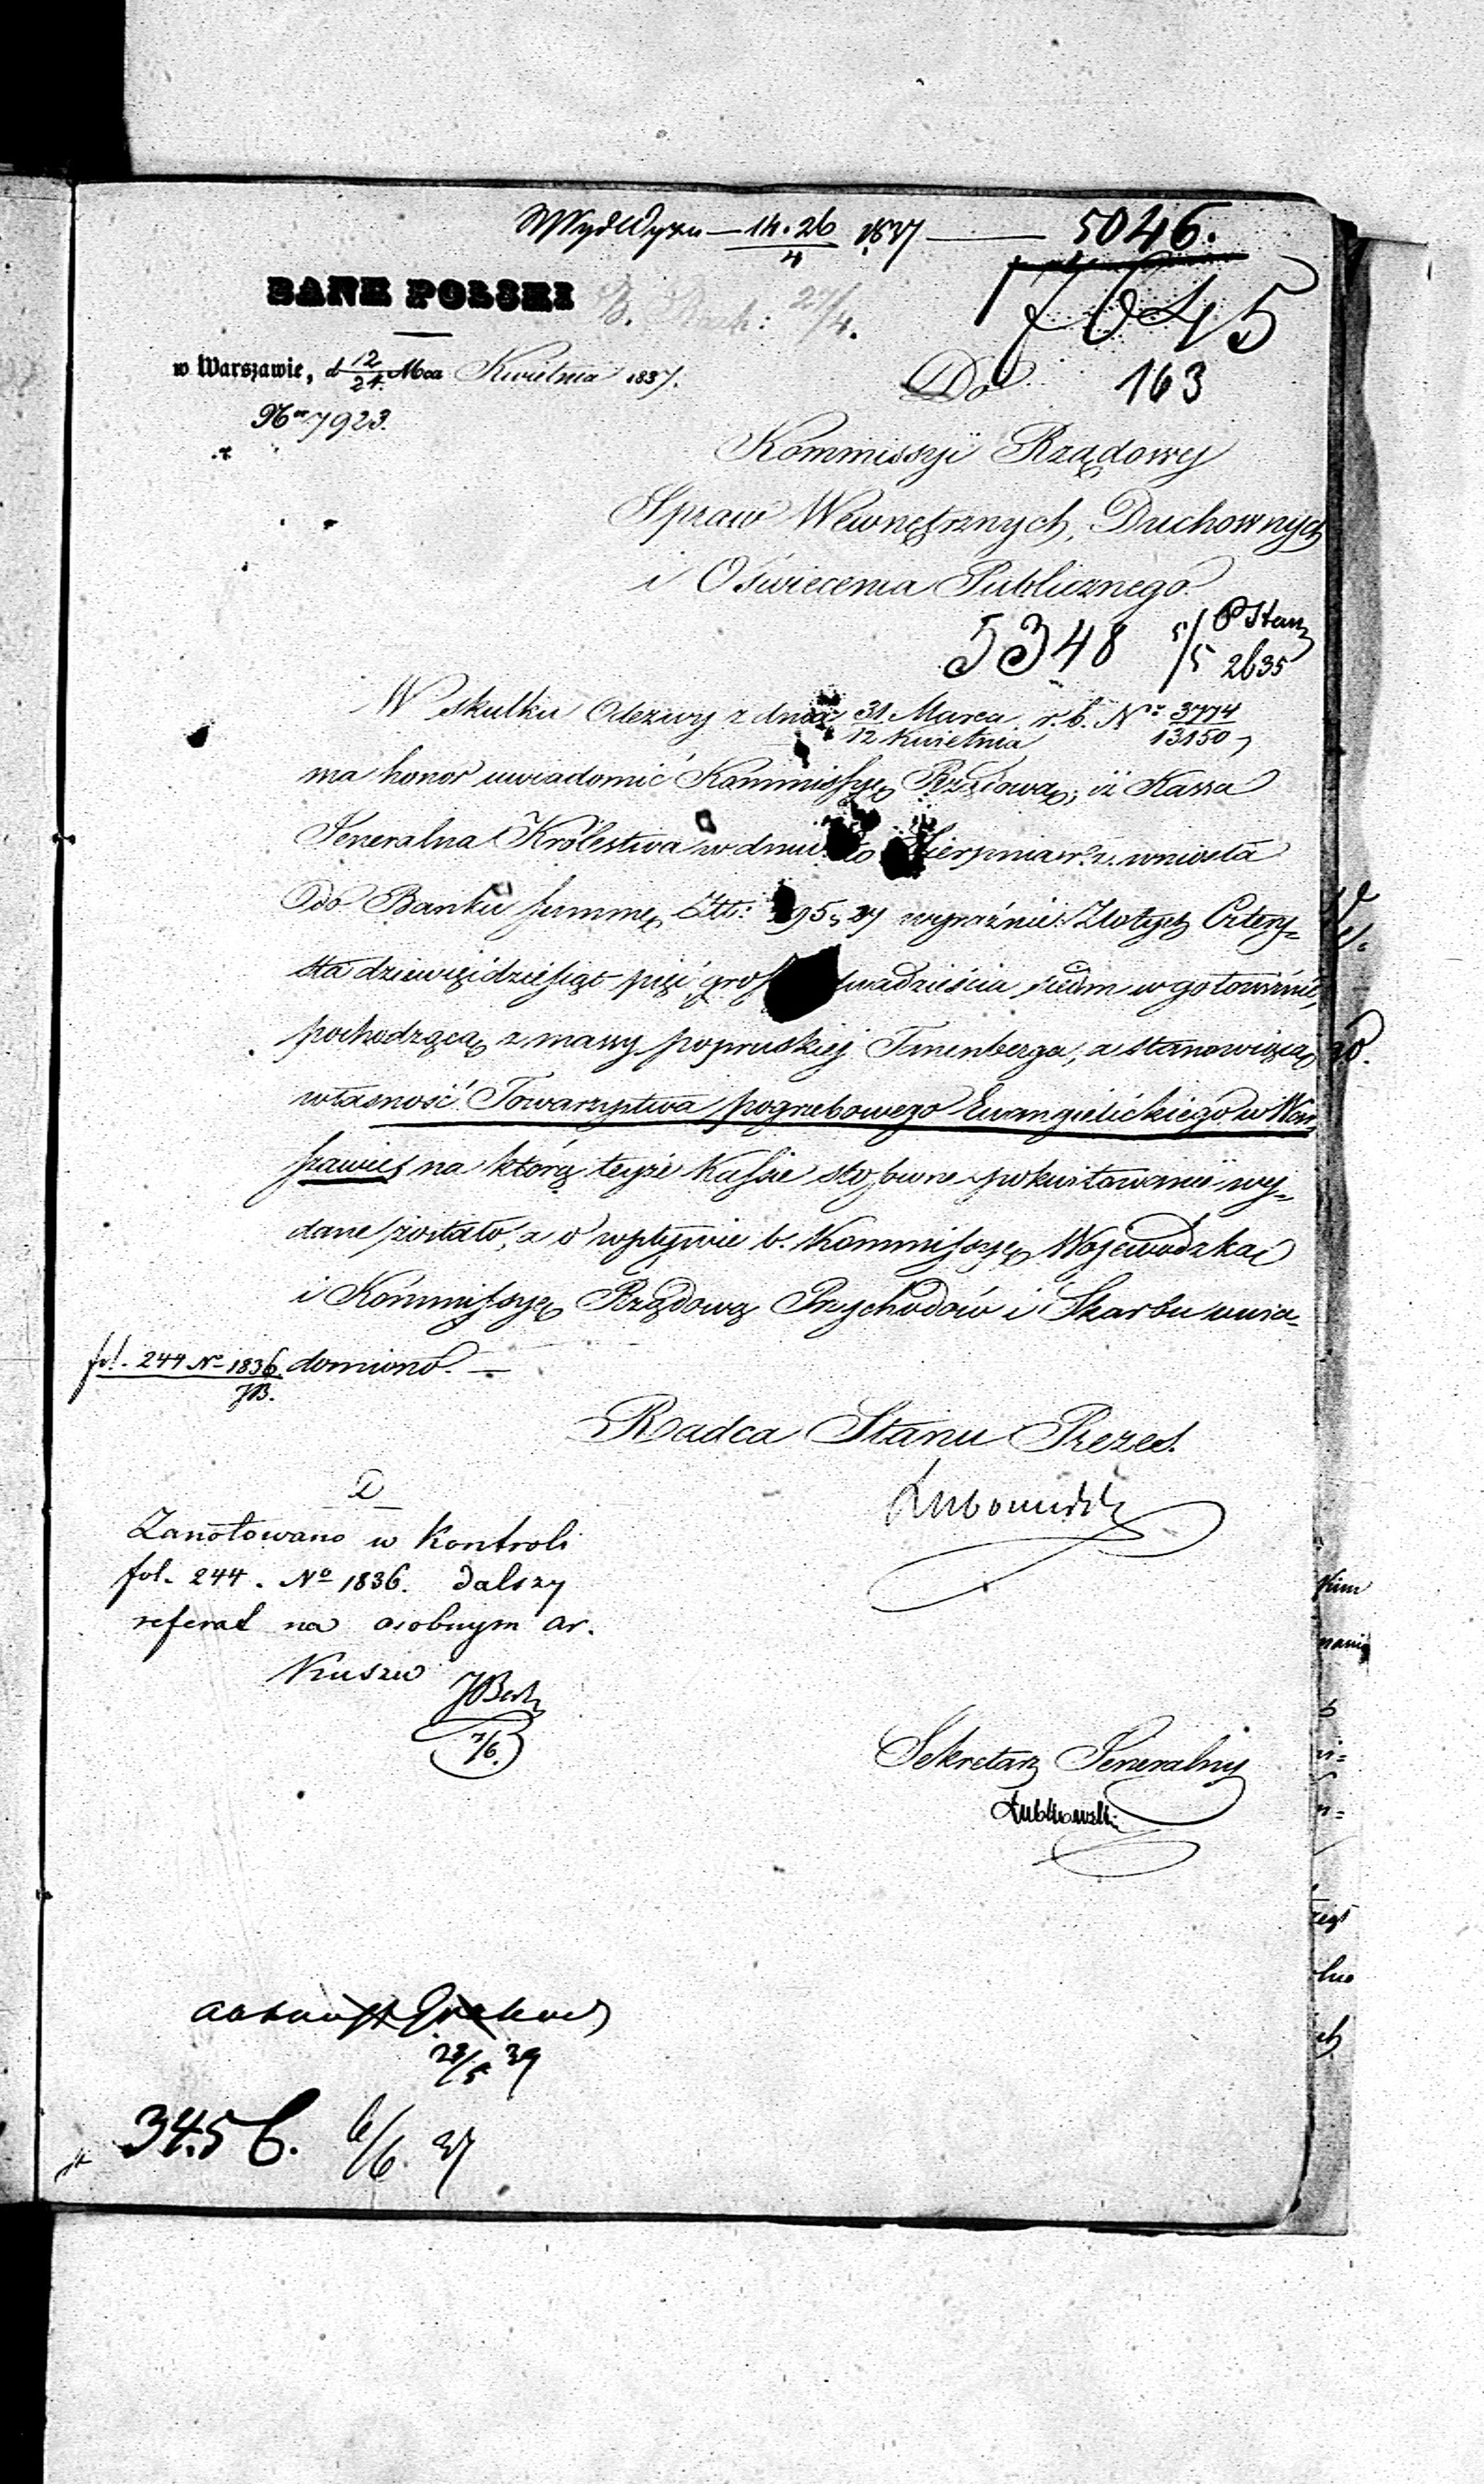 14.26/4 1837 — 5046.
BANK POLSKI
27/4.
17645
w Warszawie, d 12/24 Mca Kwietnia 1837.
Nro 7923.
Do
163
Kommissyi Rządowey
Spraw Wewnętrznych, Duchownych
i Oświecenia Publicznego
5348 5/5 2635
W skutku Odezwy z dnia 31 Marca/12 Kwietnia r. b. Nr 3774/13150,
ma honor uwiadomić Kommissyę Rządową, iż Kassa
Jeneralna Królestwa w dniu Sierpnia r. z. wniosła
Do Banku summę Złt: 95, 27 wyraźnie Złotych Cztery=
sta dziewięćdziesiąt pięć dwadzieścia siedm w gotowiźnie,
pochodzącą z massy popruskiej Tanenberga, a stanowiącą
własność Towarzystwa pogrzebowego Ewangielickiego w War=
szawie, na którą teyże Kassie stosowne pokwitowanie wy=
dane zostało, a o wpływie b. Kommissyę Wojewodzką
i Kommissyę Rządową Przychodów i Skarbu uwia=
fol. 244 No 1836. domiono. —
JB.
Radca Stanu Prezes.
Lubowidzki
D
Zanotowano w Kontroli
fol. 244. No 1836. dalszy
referat na osobnym ar.
kuszu
7/6.
Sekretarz Jeneralny
Lubkowski
28/5 39
3456. 6/6. 37